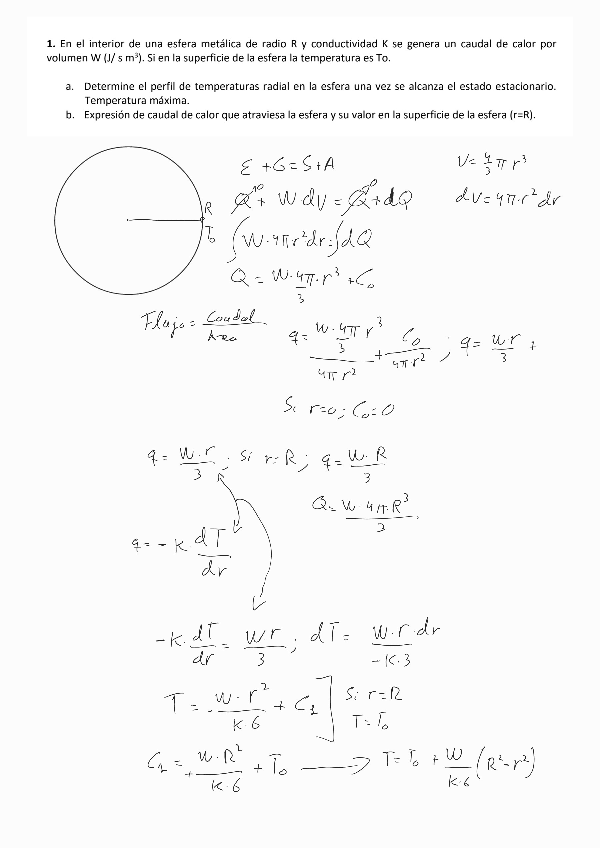 1. En el interior de una esfera metálica de radio R y conductividad K se genera un caudal de calor por
volumen W (J/ s m³). Si en la superficie de la esfera la temperatura es To.
a. Determine el perfil de temperaturas radial en la esfera una vez se alcanza el estado estacionario.
Temperatura máxima.
b. Expresión de caudal de calor que atraviesa la esfera y su valor en la superficie de la esfera (r=R).
E + G = S + A
V = 4/3 π r³
R
T₀
Q⁰ + W dV = Q⁰ + dQ
dV = 4π·r² dr
∫ W·4π r² dr = ∫ dQ
Q = W·4π·r³/3 + C₀
Flujo = Caudal/Area
q = (W·4π r³/3)/(4π r²) + C₀/(4π r²) ; q = W r/3 +
Si r=0 ; C₀=0
q = W·r/3 ; Si r=R ; q = W·R/3
Q = W 4π·R³/3
q = - K dT/dr
-K·dT/dr = W r/3 ; dT = W·r·dr/-K·3
T = -W·r²/K·6 + C₁
Si r=R
T=T₀
C₁ = +W·R²/K·6 + T₀ → T = T₀ + W/K·6 (R²-r²)